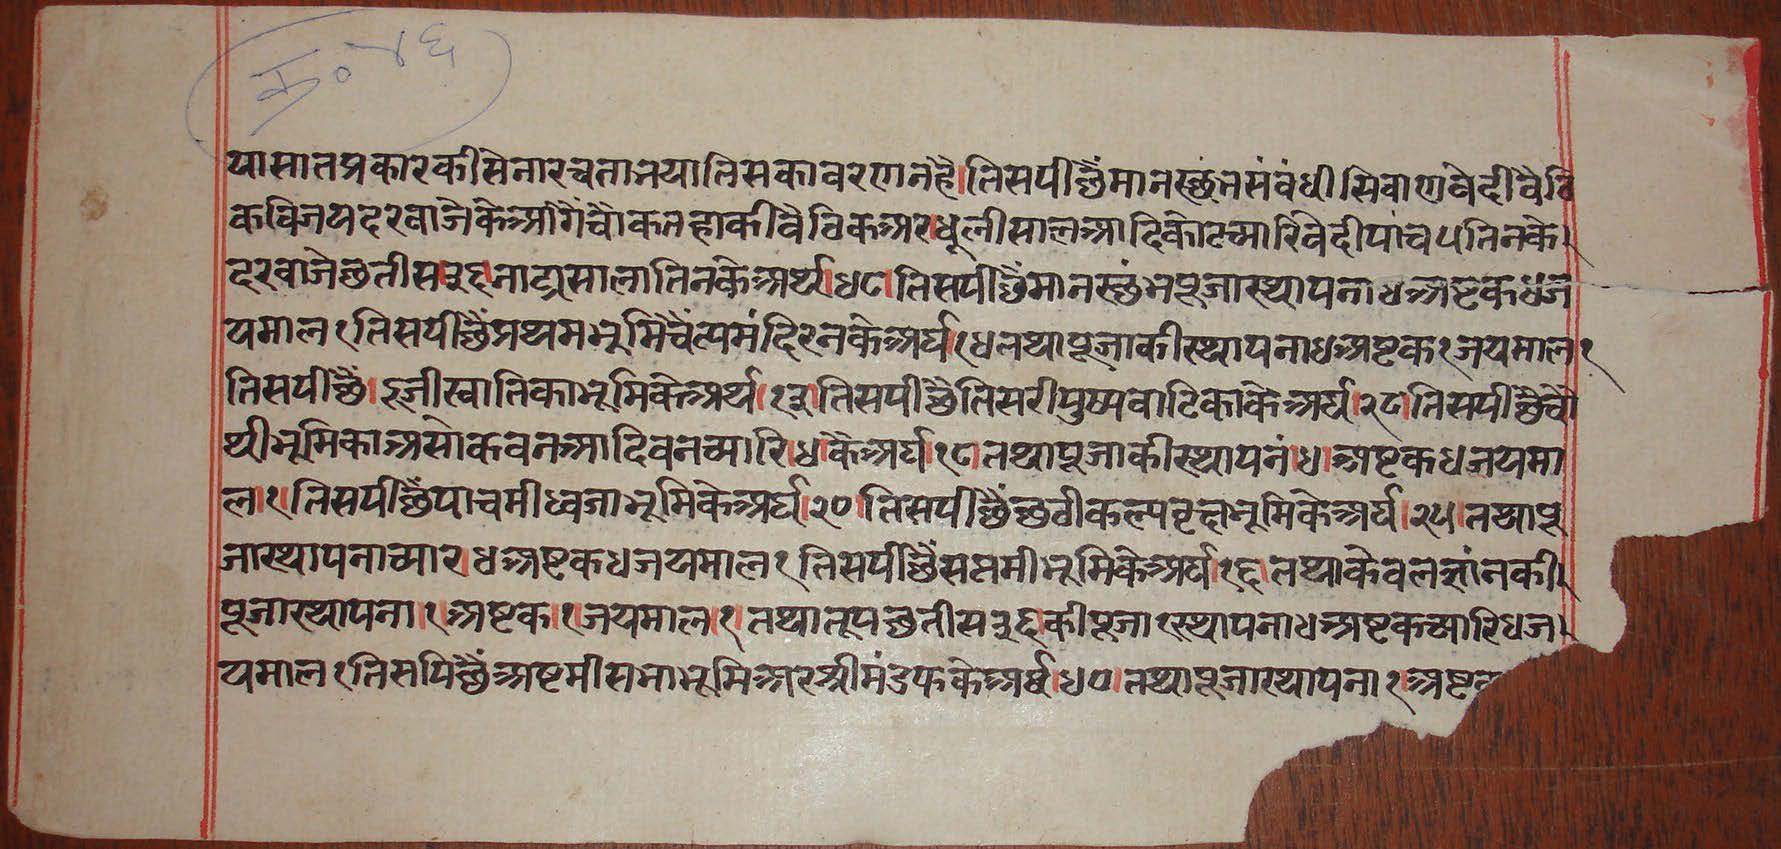 क्र० ४६
या सात प्रकार की सेना रचता भया तिस का वरणन है। तिस पीछैं मानस्छंभ संबंधी सिवाण वेदी वै वि
क विजय दरवाजे के आगैं चौक तहा की वै विक अर धूली साल आदि कोट च्यारि वेदी पांच ५ तिन के।
दरवाजे छतीस ३६ नाट्रसाला तिन के अर्घ। ४८। तिस पीछैं मानस्छंभ पूजा स्थापना ४ अष्टक ४ ज
यमाल १ तिस पीछैं प्रथम भूमि चैत्य मंदिरन के अर्घ १४ तथा पूजा की स्थापना ४ अष्टक १ जयमाल १
तिस पीछैं। दूजी खातिका भूमि के अर्घ। १३। तिस पीछैं तिसरी पुष्पवाटिका के अर्घ। २८। तिस पीछैं चौ
थी भूमिका असोक वन आदि वन च्यारि। ४ कै अर्घ। १८। तथा पूजा की स्थापनां। ४। अष्टक ४ जयमा
ल। १। तिस पीछैं पाचमी ध्वजा भूमि के अर्घ। २०। तिस पीछैं छठी कल्पवृक्ष भूमि के अर्घ। २५। तथा पू
जा स्थापना च्यार। ४ अष्टक ४ जयमाल १ तिस पीछैं सप्तमी भूमि के अर्घ। १६। तथा केवलज्ञांन की।
पूजा स्थापना। १ अष्टक। १ जयमाल। १। तथा तूप छतीस ३६ की पूजा। स्थापना ४ अष्टक च्यारि ४ ज।
यमाल १ तिस पिछैं अष्टमी सभा भूमि अर श्रीमंडफ के अर्घ। ४०। तथा पूजा स्थापना १ अष्ट